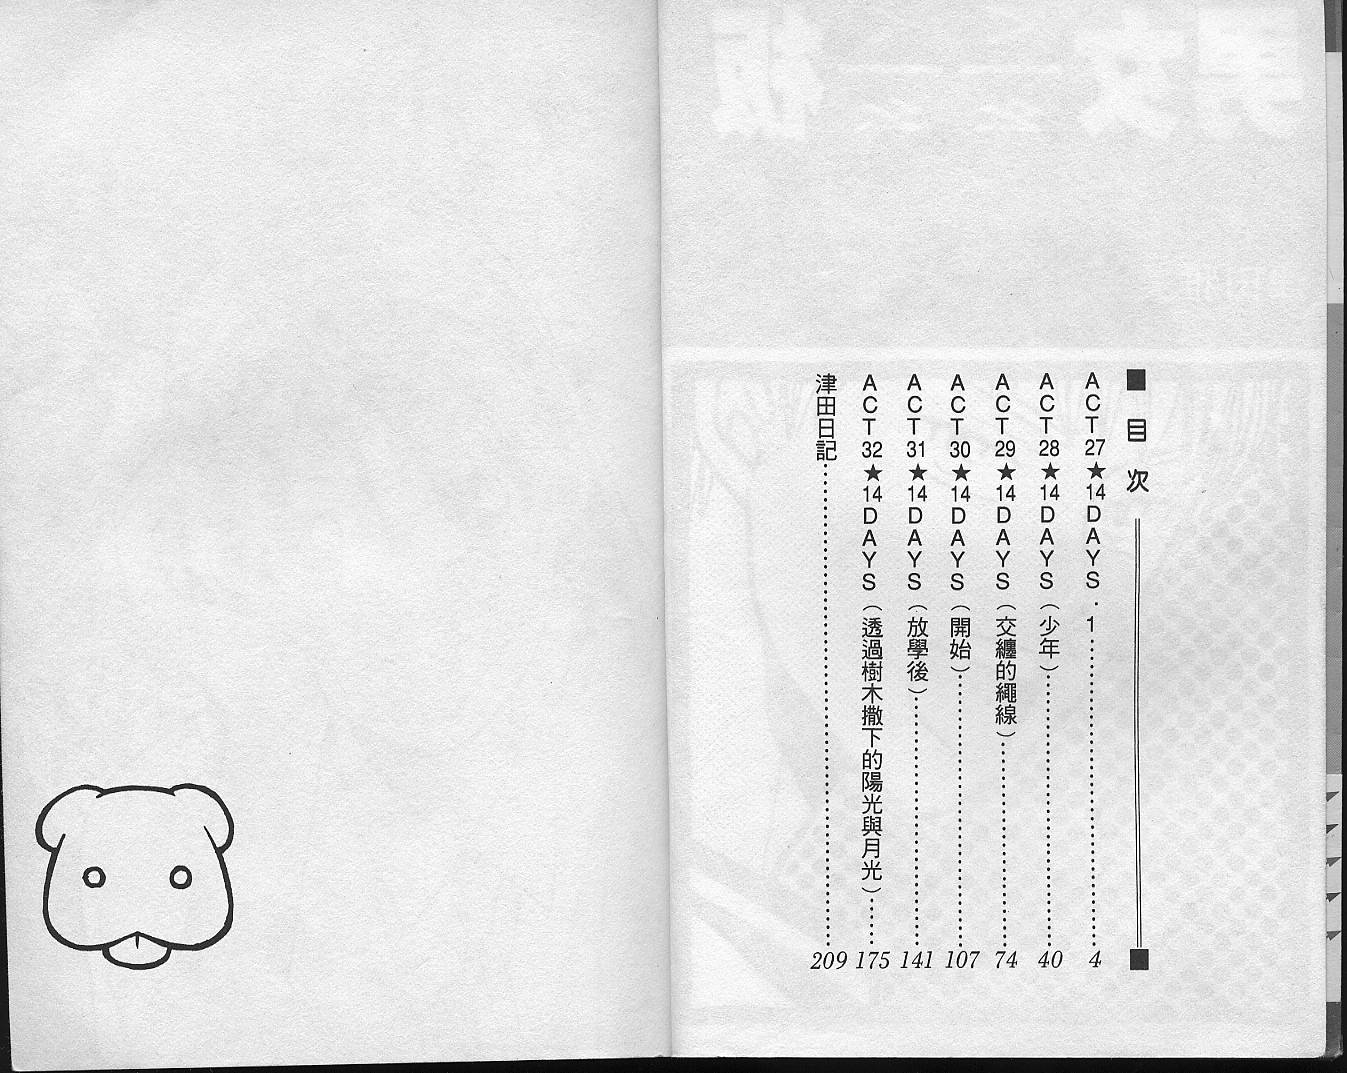 ■目次
ACT27★14DAYS・1……4
ACT28★14DAYS（少年）……40
ACT29★14DAYS（交纏的繩線）……74
ACT30★14DAYS（開始）……107
ACT31★14DAYS（放學後）……141
ACT32★14DAYS（透過樹木撒下的陽光與月光）……175
津田日記……209